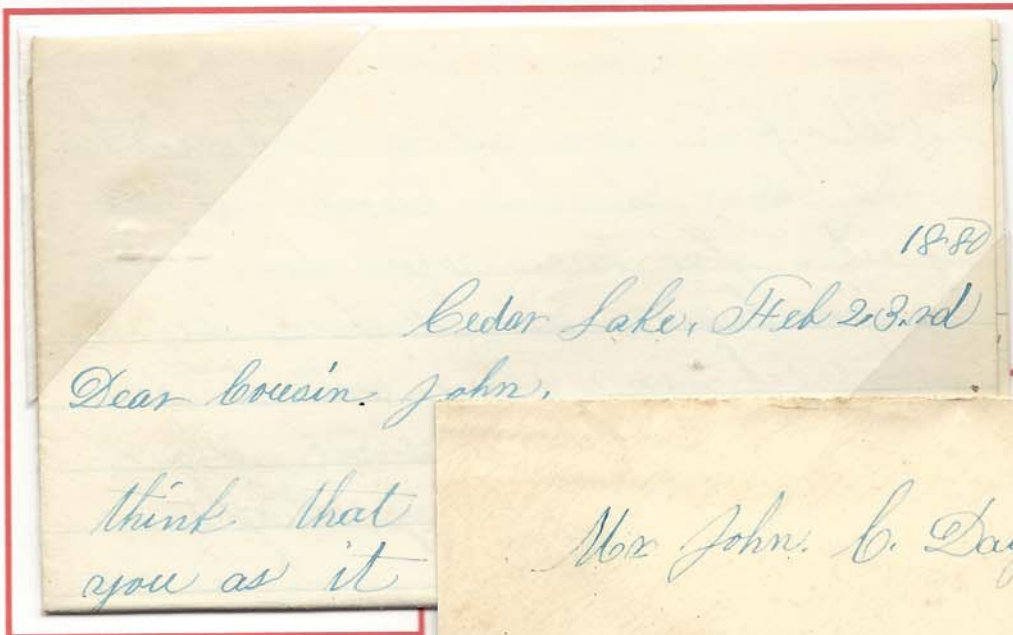 1880
Cedar Lake, Feb 23rd
Dear Cousin John,
think that
you as it
Mr John. C. Day